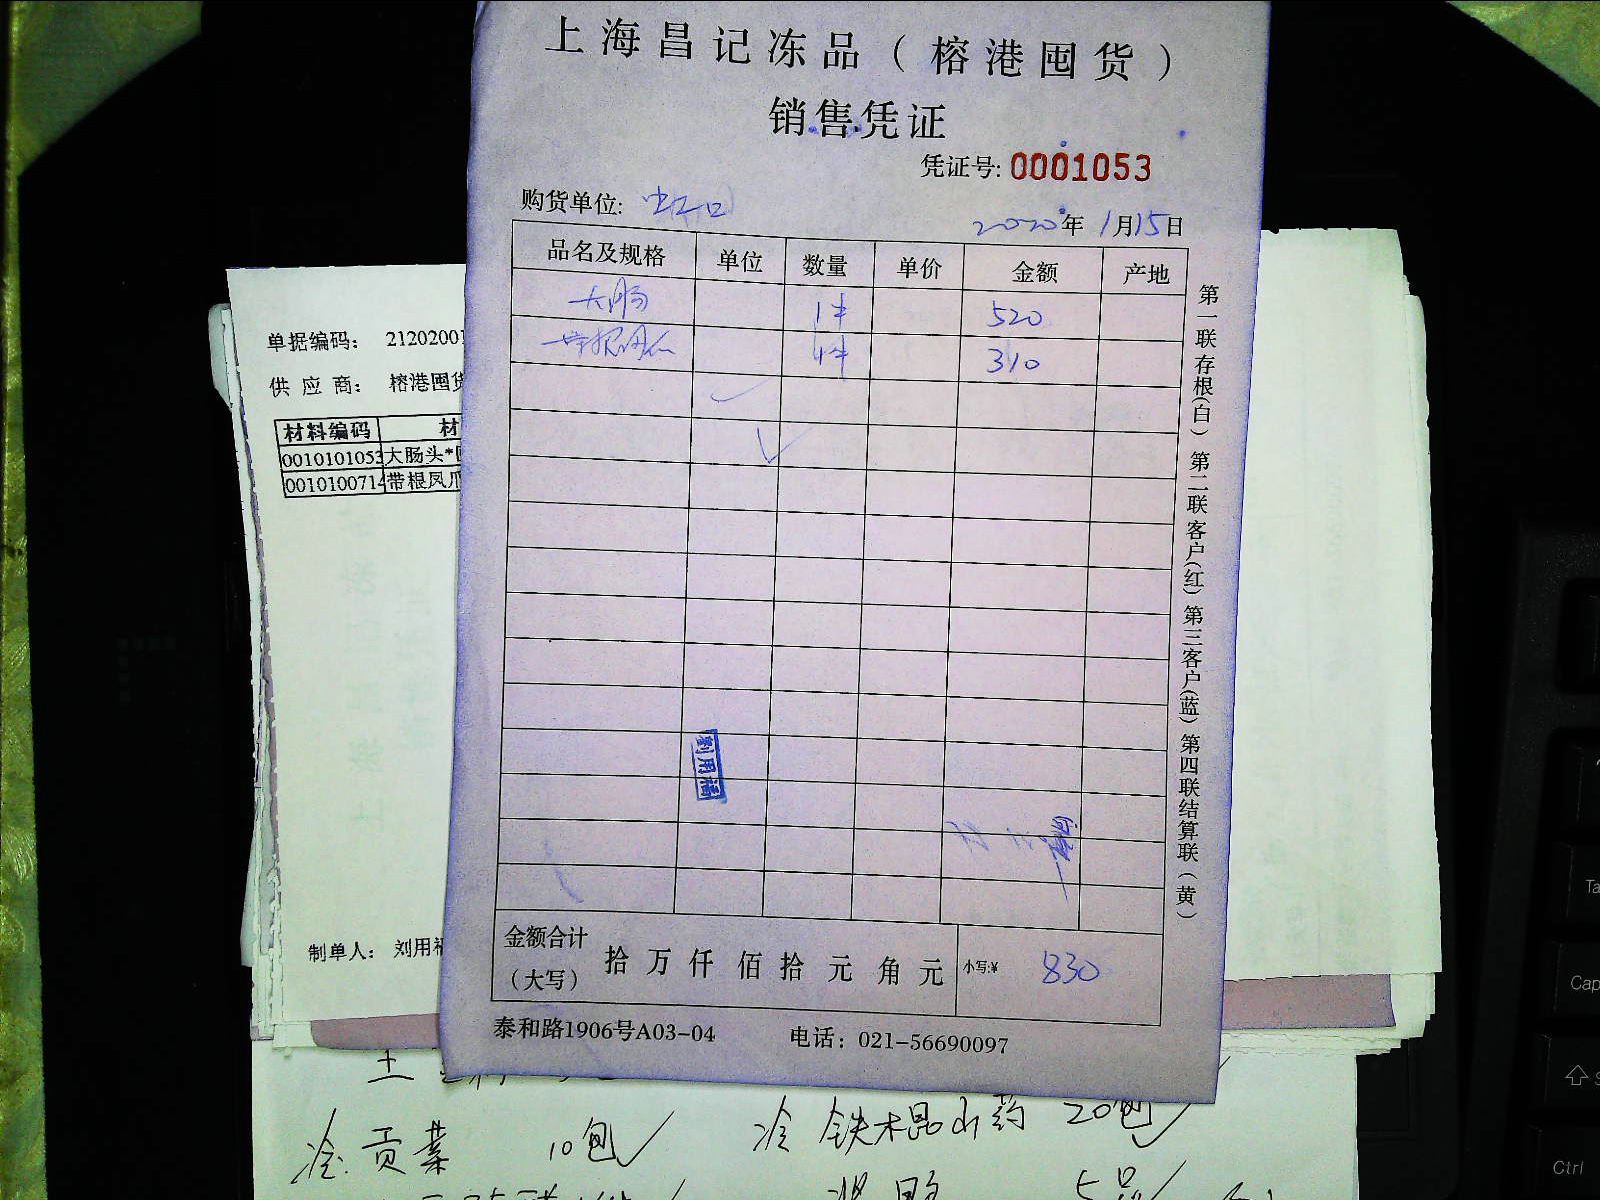 上海昌记冻品（榕港囤货）
销售凭证
凭证号: 0001053
购货单位: 虹口
2020年 1月15日
品名及规格 单位 数量 单价 金额 产地
大肠 1件 520
带根凤爪 1件 310
刘用福
金额合计（大写） 拾 万 仟 佰 拾 元 角 元 小写:¥ 830
泰和路1906号A03-04 电话：021-56690097
第一联存根(白) 第二联客户(红) 第三客户(蓝) 第四联结算联(黄)
单据编码： 2120200
供 应 商： 榕港囤货
材料编码 材
0010101053 大肠头*
001010071 带根凤爪
制单人： 刘用福
冷 贡菜 10包
冷 铁木棍山药 20包